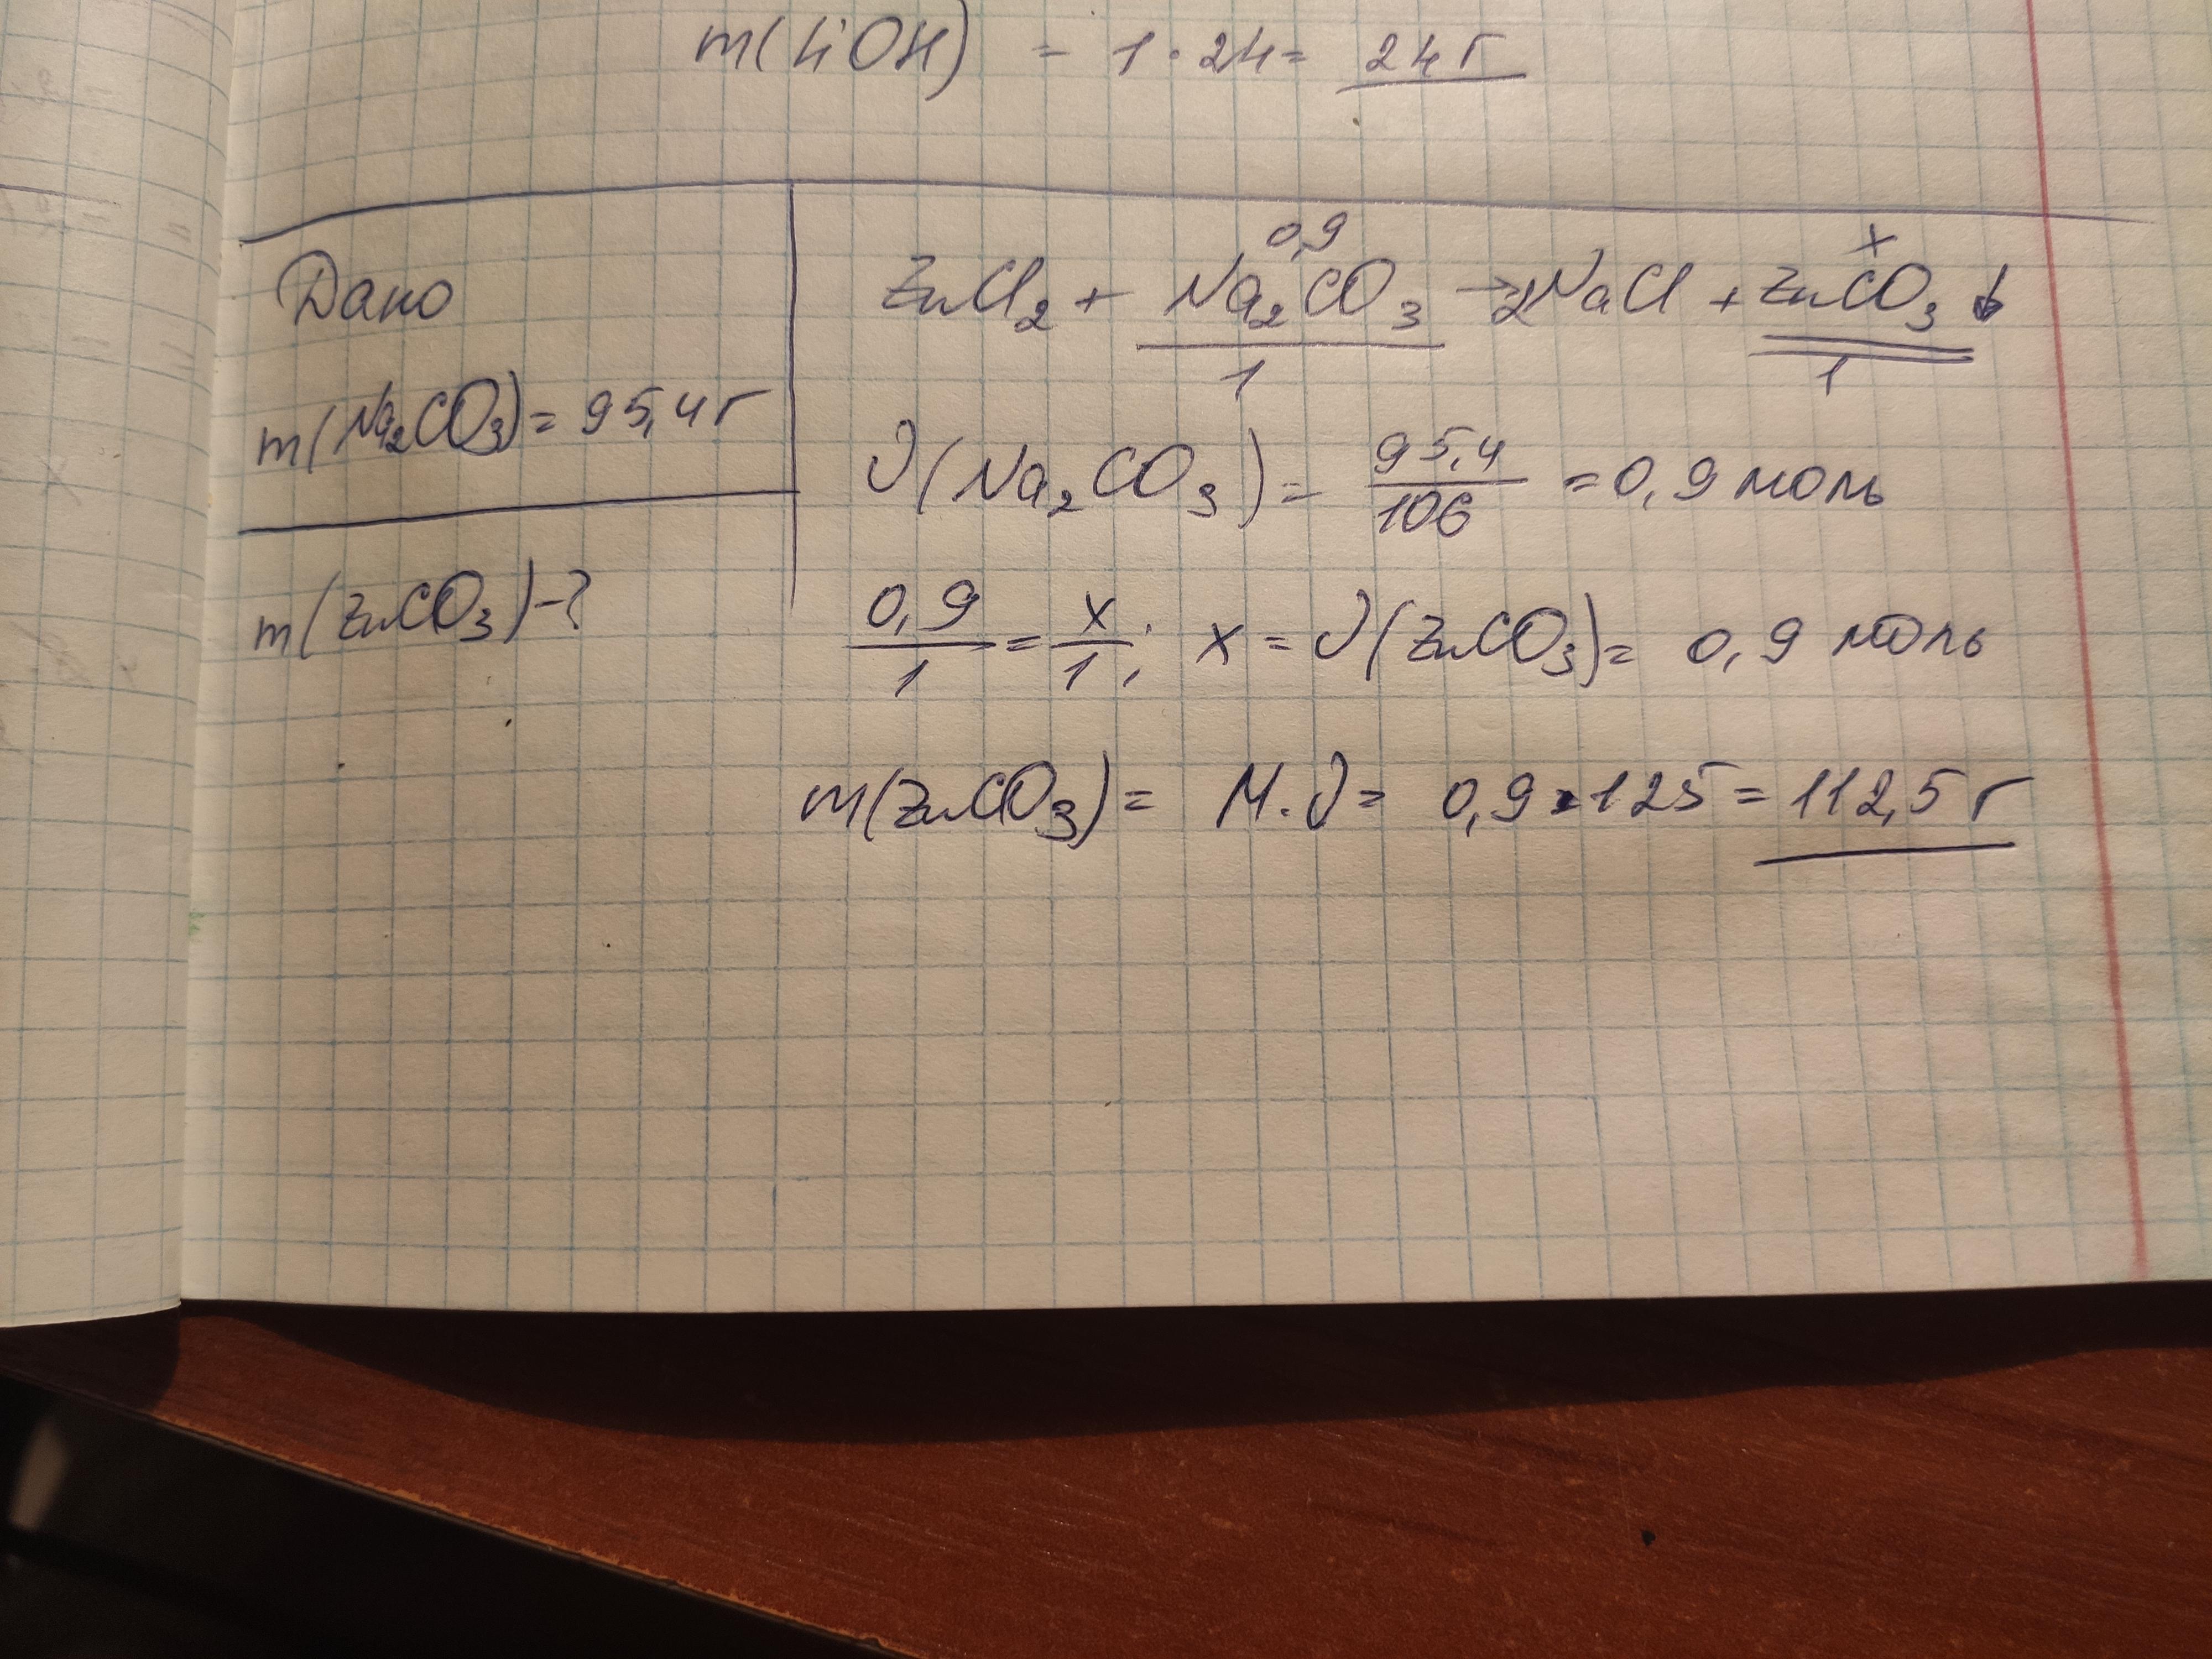 m(LiOH) = 1·24= 24г
Дано
m(Na₂CO₃)= 95,4г
m(ZnCO₃)-?
0,9 x
ZnCl₂ + Na₂CO₃ → 2NaCl + ZnCO₃ ↓
1 1
ν(Na₂CO₃)= 95,4/106 =0,9 моль
0,9/1 = x/1; x = ν(ZnCO₃)= 0,9 моль
m(ZnCO₃)= M·ν= 0,9·125=112,5 г